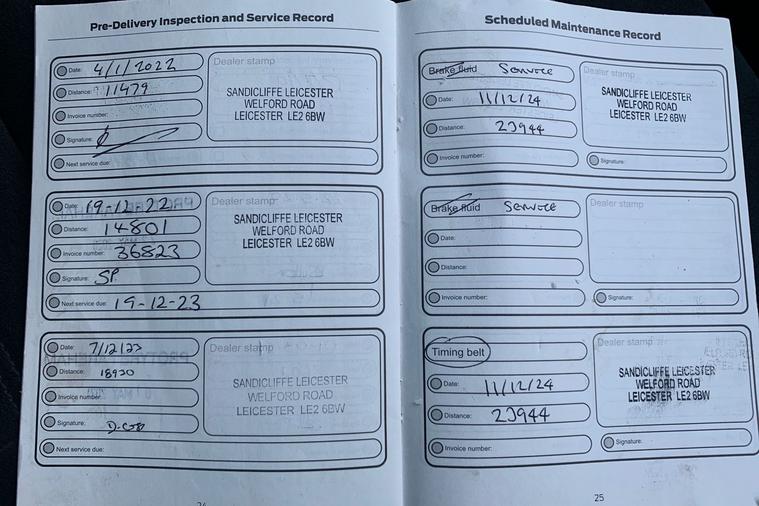 Pre-Delivery Inspection and Service Record
Date: 4/1/2022
Distance: 11479
Invoice number:
Signature:
Next service due:
Dealer stamp
SANDICLIFFE LEICESTER
WELFORD ROAD
LEICESTER LE2 6BW
Date: 19-12-22
Distance: 14801
Invoice number: 36823
Signature: SP
Next service due: 19-12-23
Dealer stamp
SANDICLIFFE LEICESTER
WELFORD ROAD
LEICESTER LE2 6BW
Date: 7/12/23
Distance: 18920
Invoice number:
Signature:
Next service due:
Dealer stamp
SANDICLIFFE LEICESTER
WELFORD ROAD
LEICESTER LE2 6BW
Scheduled Maintenance Record
Brake fluid SERVICE
Date: 11/12/24
Distance: 23944
Invoice number:
Dealer stamp
SANDICLIFFE LEICESTER
WELFORD ROAD
LEICESTER LE2 6BW
Signature:
Brake fluid SERVICE
Date:
Distance:
Invoice number:
Dealer stamp
Signature:
Timing belt
Date: 11/12/24
Distance: 23944
Invoice number:
Dealer stamp
SANDICLIFFE LEICESTER
WELFORD ROAD
LEICESTER LE2 6BW
Signature:
25